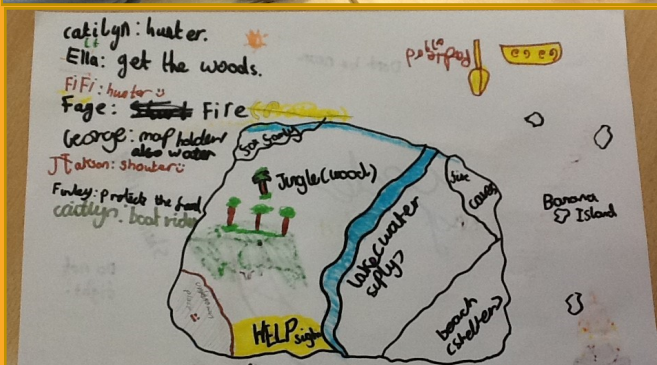 catilyn: hunter.
Ella: get the woods.
FiFi: hunter
Faye: Fire
George: map holder
also water
Jackson: shouter
Finley: protect the food
caitlyn: boat rider
Jungle(wood)
lake(water
suply)
five
caves
beach
(shelter)
HELP sign
Banana
Island